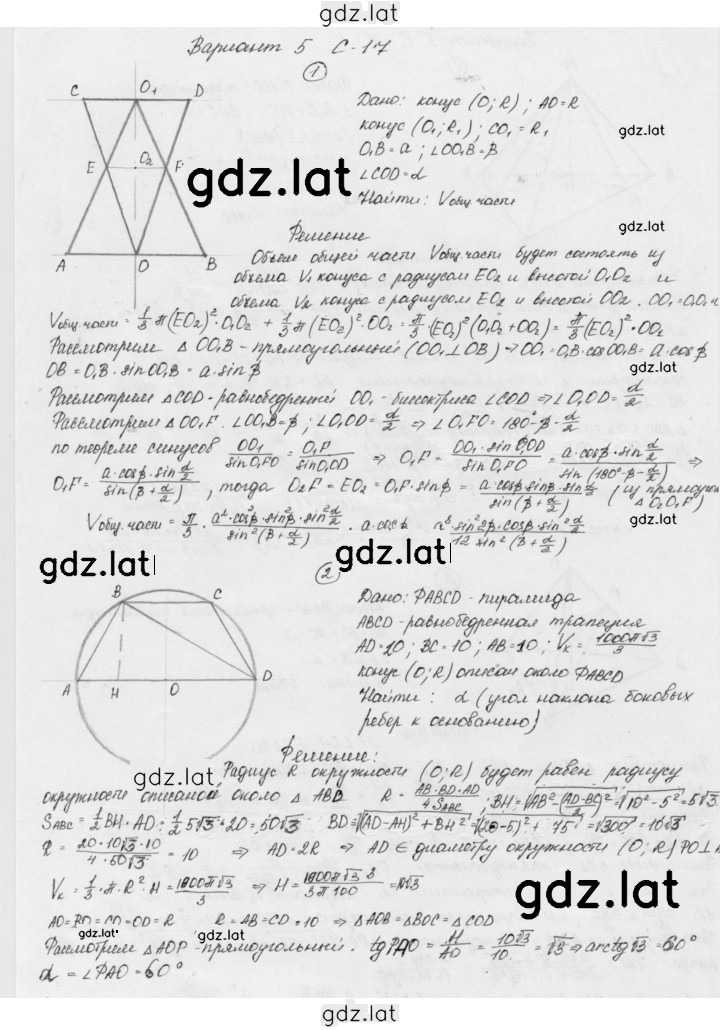 gdz.lat
Вариант 5 С-17
1
C O₁ D
Дано: конус (O; R); AO=R
конус (O₁; R₁); CO₁ = R₁
gdz.lat
O₁B = a; ∠OO₁B = β
E O₂ F
∠COD = α
gdz.lat
Найти: V общ. части
gdz.lat
Решение
A O B
Объем общей части V общ. части будет состоять из
объема V₁ конуса с радиусом EO₂ и высотой O₁O₂ и
объема V₂ конуса с радиусом EO₂ и высотой OO₂. OO₁ = O₁O₂+
V общ. части = 1/3 π(EO₂)²·O₁O₂ + 1/3 π(EO₂)²·OO₂ = π/3·(EO₂)²(O₁O₂+OO₂) = π/3(EO₂)²·OO₂
Рассмотрим △OO₁B - прямоугольный (OO₁⊥OB) ⇒ OO₁ = O₁B·cos OO₁B = a·cosβ
OB = O₁B·sin OO₁B = a·sinβ
Рассмотрим △COD - равнобедренный OO₁ - биссектриса ∠COD ⇒ ∠O₁OD = α/2
Рассмотрим △OO₁F. ∠OO₁B = β; ∠O₁OD = α/2 ⇒ ∠O₁FO = 180° - β - α/2
по теореме синусов OO₁/sin O₁FO = O₁F/sin O₁OD ⇒ O₁F = OO₁·sin O₁OD/sin O₁FO = a·cosβ·sin α/2/sin(180°-β-α/2) ⇒
O₁F = a·cosβ·sin α/2/sin(β+α/2), тогда O₂F = EO₂ = O₁F·sinβ = a·cosβ·sinβ·sin α/2/sin(β+α/2) (из прямоуг △O₂O₁F)
V общ. части = π/3 · a²·cos²β·sin²β·sin² α/2/sin²(β+α/2) · a·cosβ
gdz.lat
gdz.lat
2
B C
Дано: PABCD - пирамида
ABCD - равнобедренная трапеция
AD=20; BC=10; AB=10; Vк = 1000π√3/3
A H O D
конус (O; R) описан около PABCD
Найти: α (угол наклона боковых
ребер к основанию)
Решение:
gdz.lat
Радиус R окружности (O; R) будет равен радиусу
окружности описаной около △ABD R = AB·BD·AD/4S_ABC; BH = √(AB²-(AD-BC/2)²) = √(10²-5²) = 5√3
S_ABC = 1/2 BH·AD = 1/2 5√3·20 = 50√3 BD = √((AD-AH)²+BH²) = √((20-5)²+75) = √300 = 10√3
R = 20·10√3·10/4·50√3 = 10 ⇒ AD = 2R ⇒ AD ∈ диаметру окружности (O; R) PO⊥A
Vк = 1/3·π·R²·H = 1000π√3/3 ⇒ H = 1000π√3·3/3π100 = 10√3
gdz.lat
AO=BO=CO=OD=R R=AB=CD=10 ⇒ △AOB=△BOC=△COD
gdz.lat
Рассмотрим △AOP - прямоугольный. tg PAO = H/AO = 10√3/10 = √3 ⇒ arctg√3 = 60°
α = ∠PAO = 60°
gdz.lat